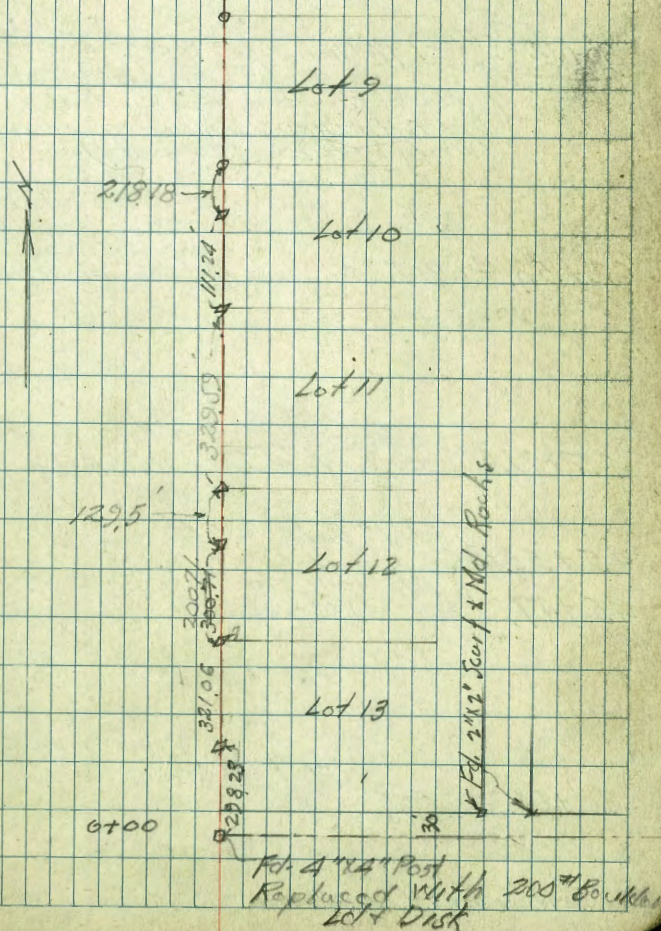 Lot 9
N
218.18
Lot 10
111.24'
Lot 11
329.59
129.5'
Lot 12
200.71
300.71
321.06
Lot 13
298.28
0+00
30'
Fd. 2"x2" & Md. Rocks
Fd. 4"x4" Post
Replaced with 200# Boulder
Disk